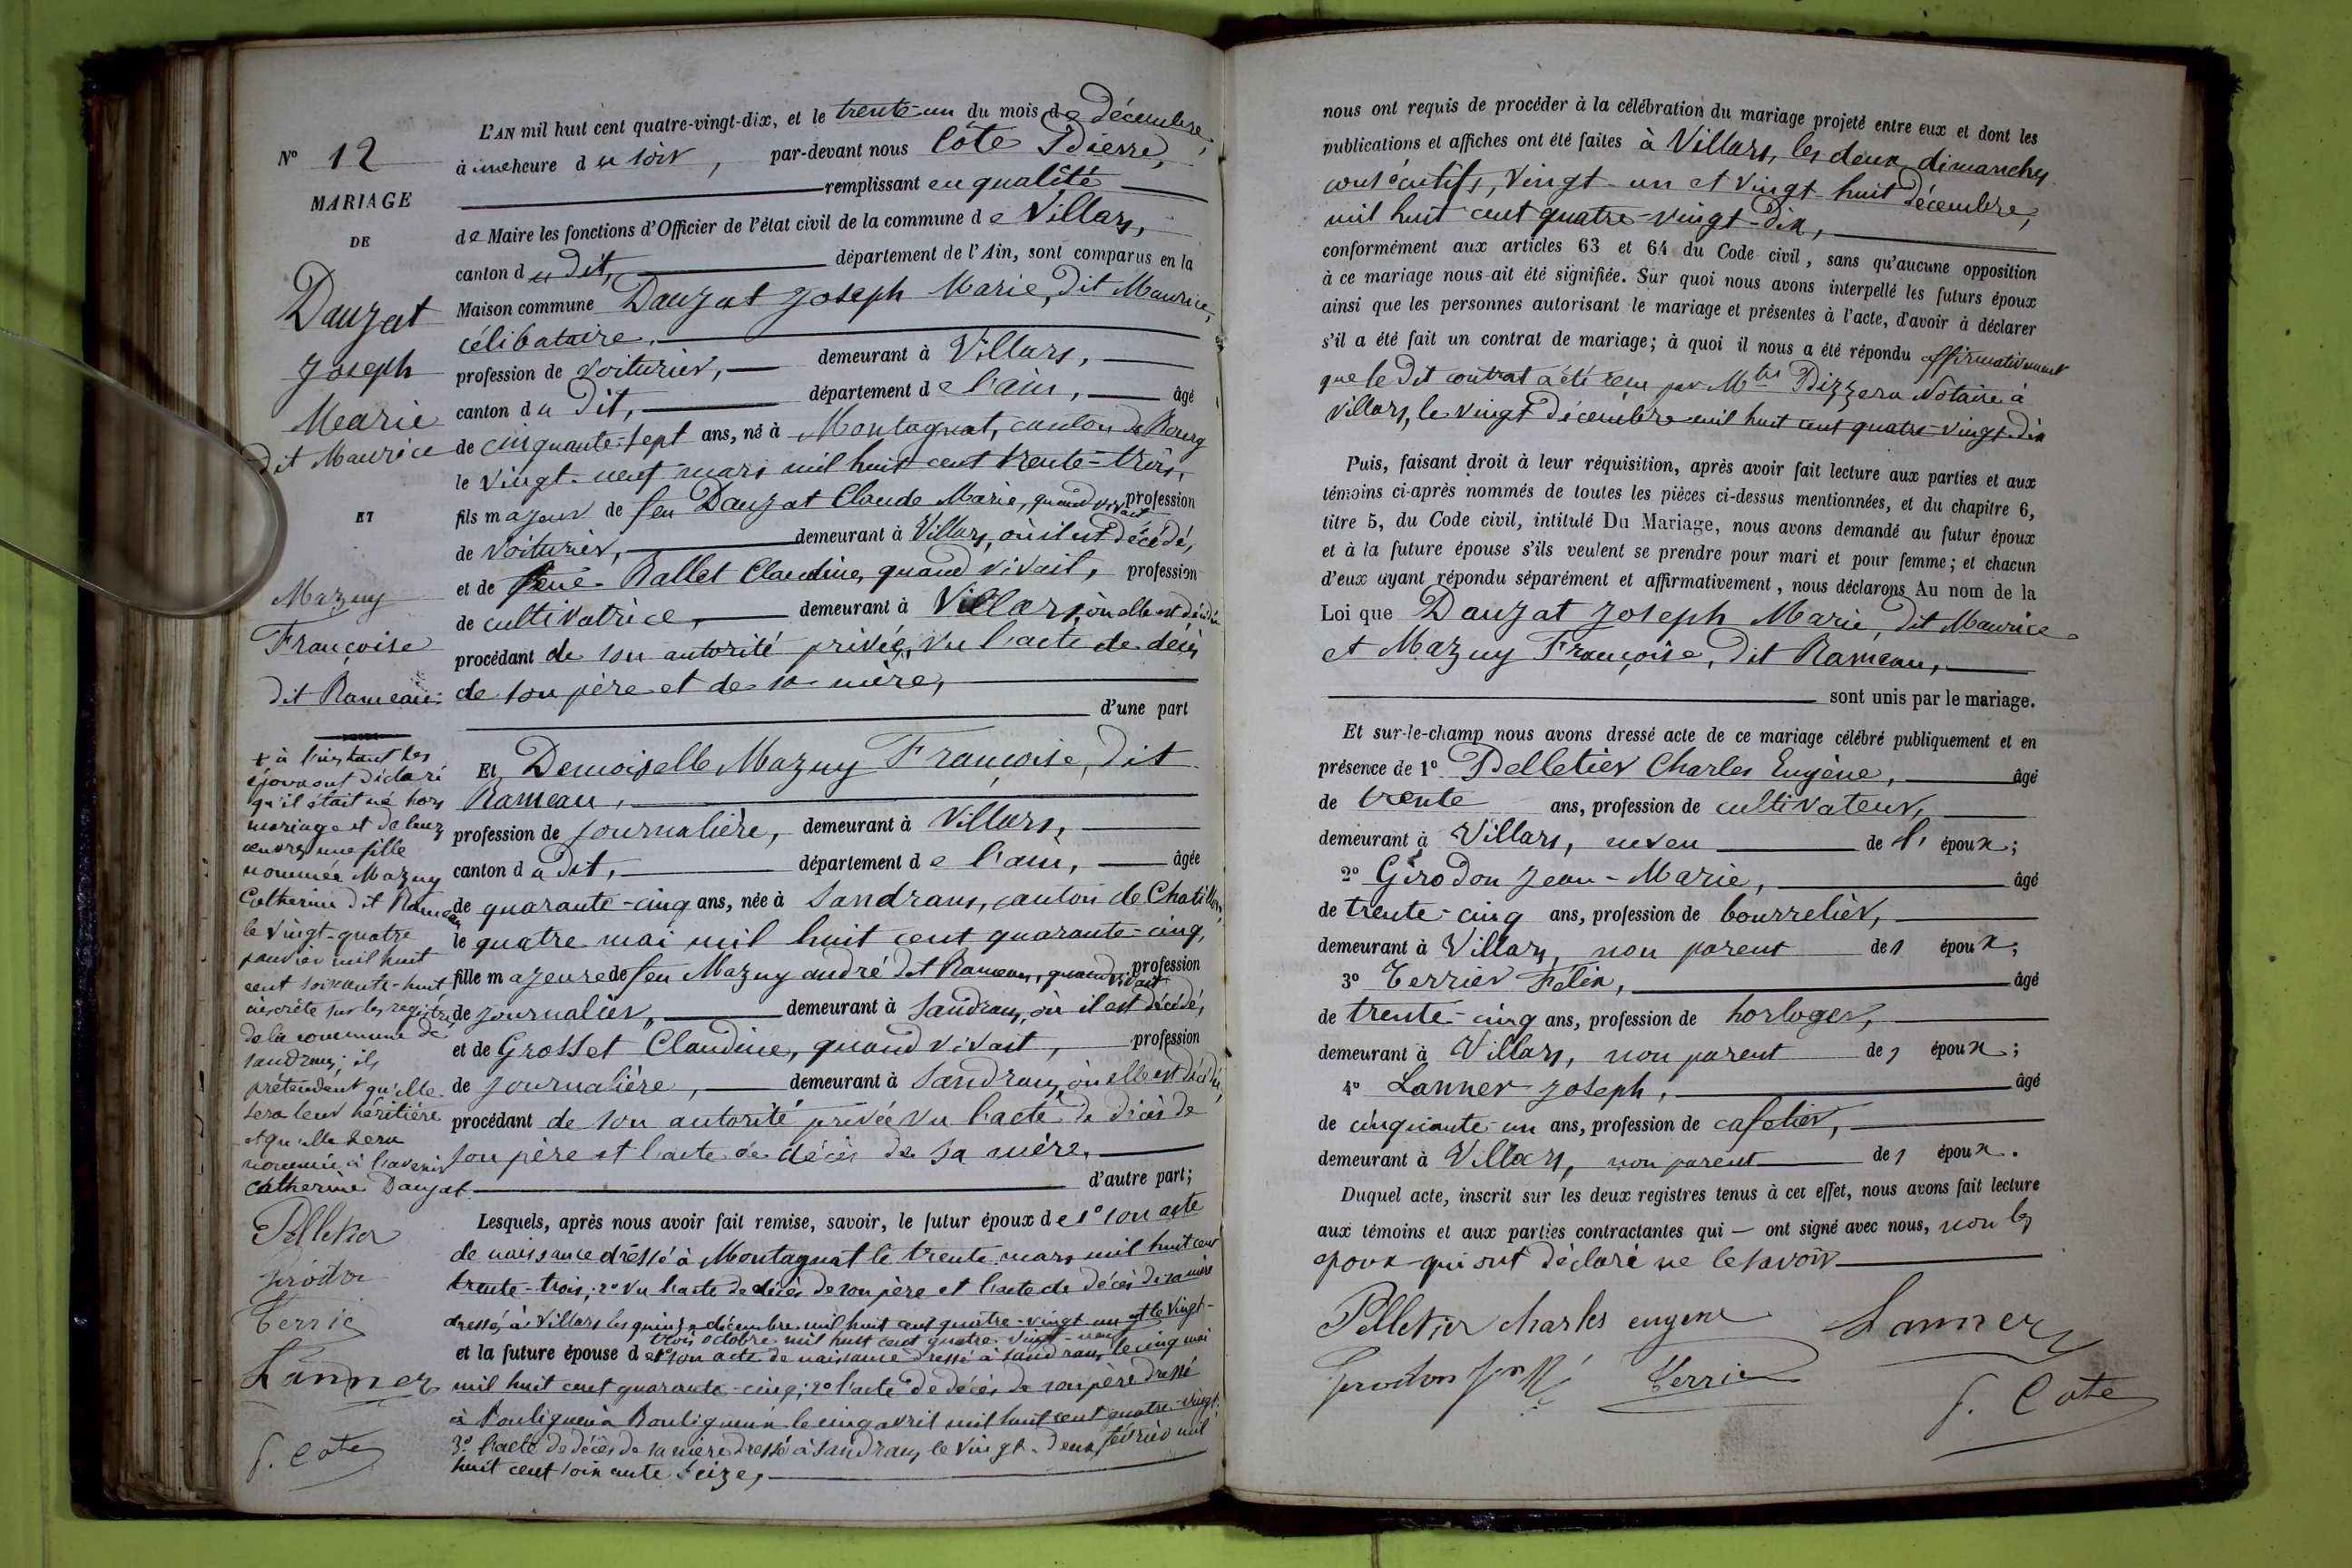 N° 12
MARIAGE
DE
Dauzat
Joseph
Marie
dit Maurice
ET
Mazuy
Françoise
dit Rameau
+ à l'instant les
époux ont déclaré
qu'il était né hors
mariage et de leurs
œuvres une fille
nommée Mazuy
Catherine dit Rameau
le vingt-quatre
janvier mil huit
cent soixante-huit
inscrite sur les registres
de la commune de
Sandrans; ils
prétendent qu'elle
sera leur héritière
et qu'elle sera
nommée à l'avenir
Catherine Dauzat
Pelletier
Girodon
Terrier
Lanner
P. Cote
L'AN mil huit cent quatre-vingt-dix, et le trente-un du mois de décembre,
à une heure du soir, par-devant nous Côte Pierre,
remplissant en qualité
de Maire les fonctions d'Officier de l'état civil de la commune de Villars,
canton du dit, département de l'Ain, sont comparus en la
Maison commune Dauzat Joseph Marie, dit Maurice,
célibataire,
profession de voiturier, demeurant à Villars,
canton du dit, département de l'ain, âgé
de cinquante-sept ans, né à Montagnat, canton de Bourg
le vingt-neuf mars mil huit cent trente-trois,
fils majeur de feu Dauzat Claude Marie, quand vivait profession
de voiturier, demeurant à Villars, où il est décédé,
et de feue Ballet Claudine, quand vivait, profession
de cultivatrice, demeurant à Villars, où elle est décédée
procédant de son autorité privée, vu l'acte de décès
de son père et de sa mère,
d'une part
Et Demoiselle Mazuy Françoise, dit
Rameau,
profession de journalière, demeurant à Villars,
canton du dit, département de l'ain, âgée
de quarante-cinq ans, née à Sandrans, canton de Chatillon,
le quatre mai mil huit cent quarante-cinq,
fille majeure de feu Mazuy andré dit Rameau, quand vivait profession
de journalier, demeurant à Sandrans, où il est décédé,
et de Grosset Claudine, quand vivait, profession
de journalière, demeurant à Sandrans, où elle est décédée,
procédant de son autorité privée vu l'acte de décès de
son père et l'acte de décès de sa mère,
d'autre part;
Lesquels, après nous avoir fait remise, savoir, le futur époux de 1° son acte
de naissance dressé à Montagnat le trente mars mil huit cent
trente-trois; 2° vu l'acte de décès de son père et l'acte de décès de sa mère
dressé, à Villars les quinze décembre mil huit cent quatre-vingt un et le vingt-
trois octobre mil huit cent quatre-vingt-neuf
et la future épouse de 1° son acte de naissance dressé à Sandrans le cinq mai
mil huit cent quarante-cinq; 2° l'acte de décès de son père dressé
à Bouligneux Bouligneux le cinq avril mil huit cent quatre-vingt
3° l'acte de décès de sa mère dressé à Sandrans, le vingt-deux février mil
huit cent soixante seize,
nous ont requis de procéder à la célébration du mariage projeté entre eux et dont les
publications et affiches ont été faites à Villars, les deux dimanches
consécutifs, vingt-un et vingt-huit décembre,
mil huit cent quatre-vingt-dix,
conformément aux articles 63 et 64 du Code civil, sans qu'aucune opposition
à ce mariage nous ait été signifiée. Sur quoi nous avons interpellé les futurs époux
ainsi que les personnes autorisant le mariage et présentes à l'acte, d'avoir à déclarer
s'il a été fait un contrat de mariage; à quoi il nous a été répondu affirmativement
que le dit contrat a été reçu par Mtre Pizzera Notaire à
Villars, le vingt décembre mil huit cent quatre-vingt-dix
Puis, faisant droit à leur réquisition, après avoir fait lecture aux parties et aux
témoins ci-après nommés de toutes les pièces ci-dessus mentionnées, et du chapitre 6,
titre 5, du Code civil, intitulé Du Mariage, nous avons demandé au futur époux
et à la future épouse s'ils veulent se prendre pour mari et pour femme; et chacun
d'eux ayant répondu séparément et affirmativement, nous déclarons Au nom de la
Loi que Dauzat Joseph Marie, dit Maurice
et Mazuy Françoise, dit Rameau,
sont unis par le mariage.
Et sur-le-champ nous avons dressé acte de ce mariage célébré publiquement et en
présence de 1° Pelletier Charles Eugène, âgé
de trente ans, profession de cultivateur,
demeurant à Villars, neveu de l' époux;
2° Girodon Jean-Marie, âgé
de trente-cinq ans, profession de bourrelier,
demeurant à Villars, non parent des époux;
3° Terrier Félix, âgé
de trente-cinq ans, profession de horloger,
demeurant à Villars, non parent des époux;
4° Lanner Joseph, âgé
de cinquante-un ans, profession de cafetier,
demeurant à Villars, non parent des époux.
Duquel acte, inscrit sur les deux registres tenus à cet effet, nous avons fait lecture
aux témoins et aux parties contractantes qui — ont signé avec nous, non les
époux qui ont déclaré ne le savoir
Pelletier charles eugene
Lanner
Girodon
Terrier
P. Cote